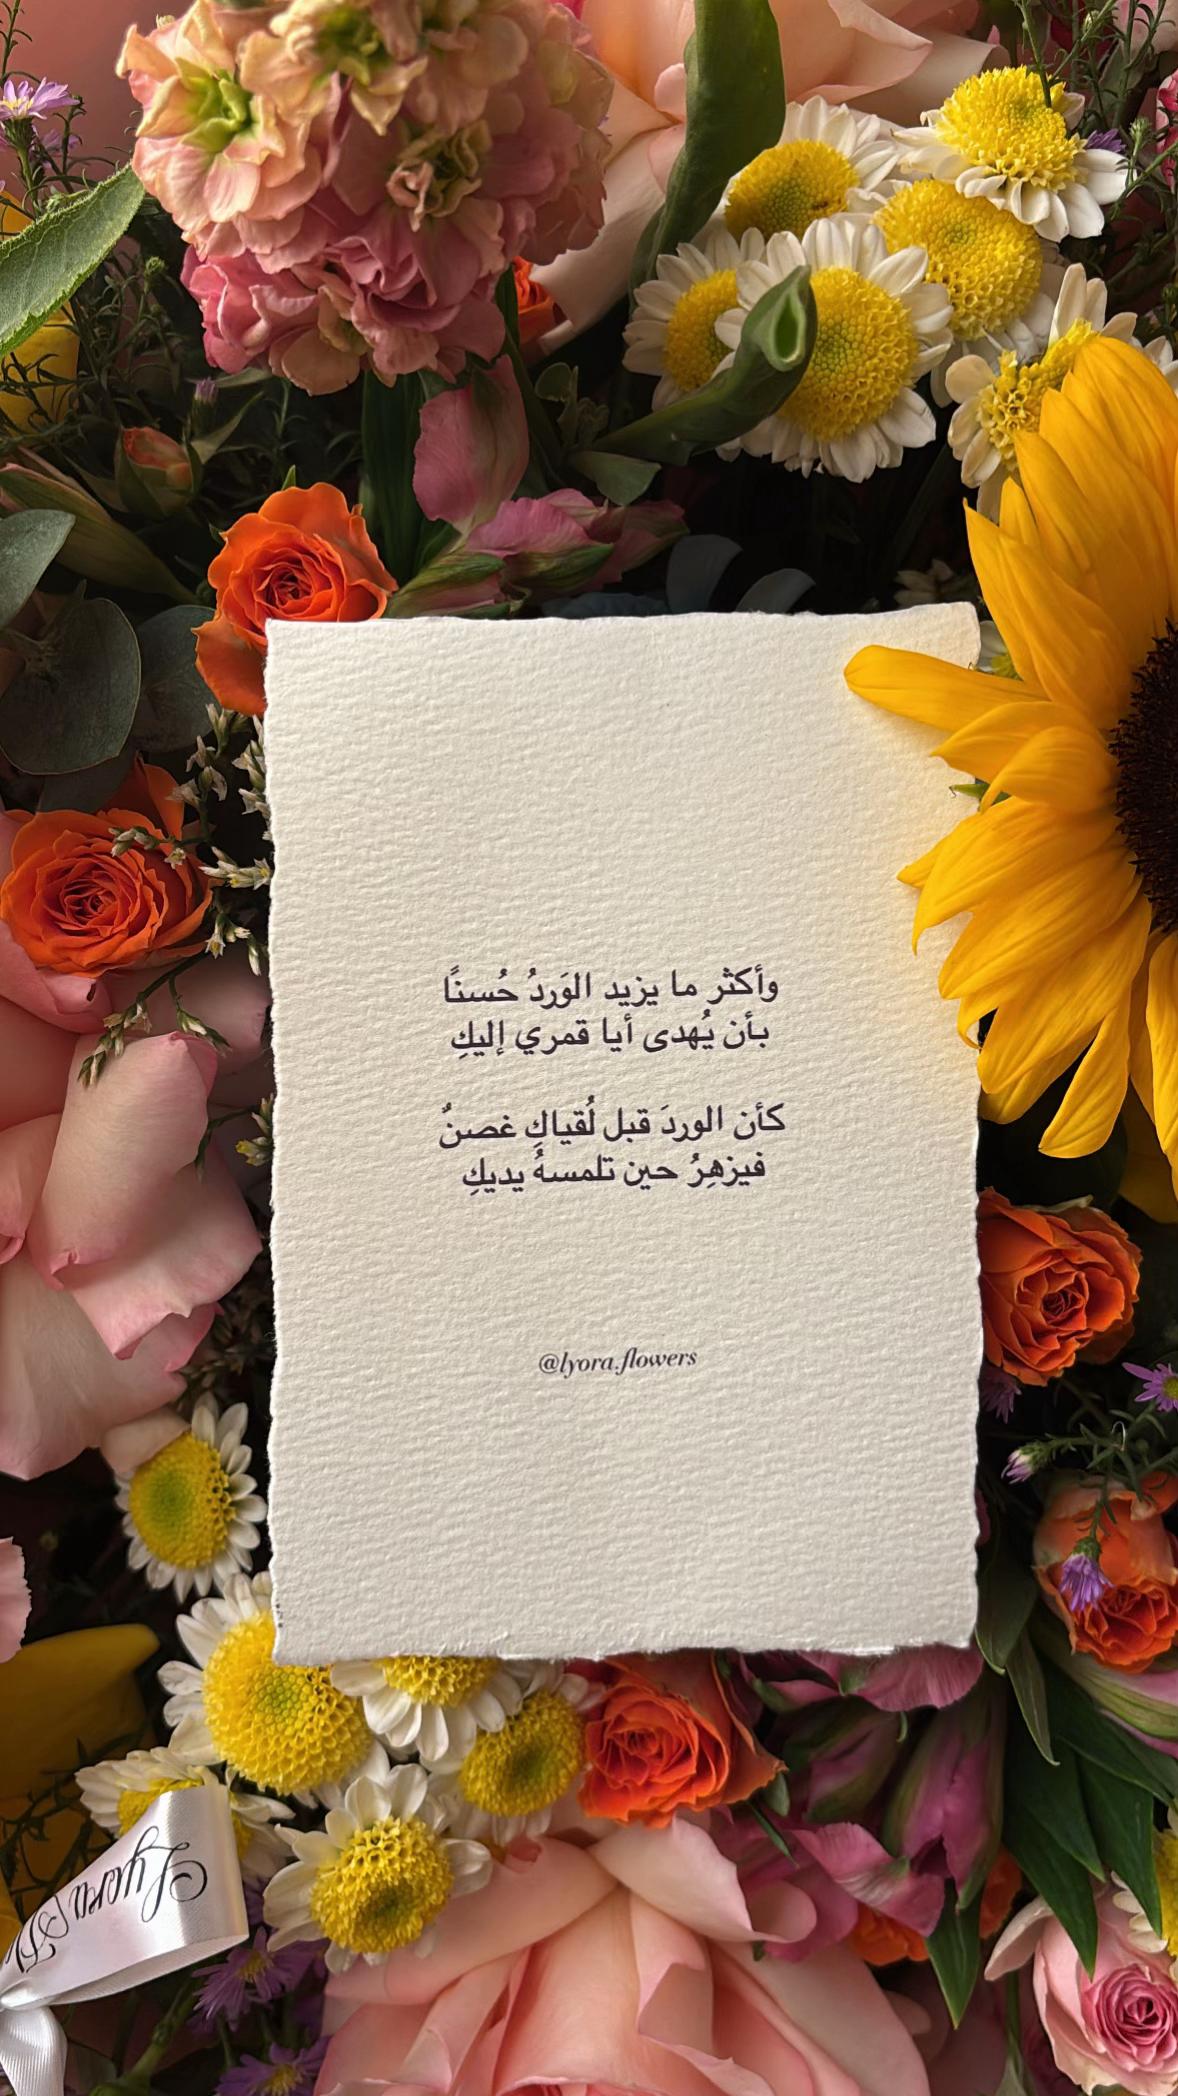 وأكثر ما يزيد الوَردُ حُسنًا
بأن يُهدى أيا قمري إليكِ
كأن الوردَ قبل لُقياكِ غصنٌ
فيزهِرُ حين تلمسهُ يديكِ
@lyora.flowers
Lyora